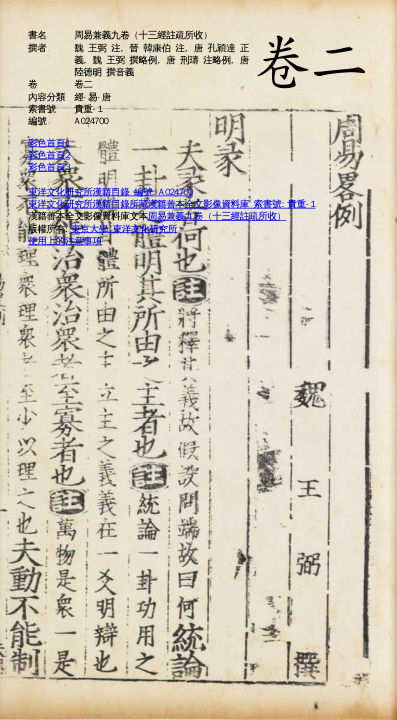 書名 周易兼義九卷（十三經註疏所收）
撰者 魏 王弼 注, 晉 韓康伯 注, 唐 孔穎達 正
義, 魏 王弼 撰略例, 唐 刑璹 注略例, 唐
陸德明 撰音義
卷 卷二
內容分類 經-易-唐
索書號 貴重-1
編號 A024700
卷二
彩色首頁1
彩色首頁2
彩色首頁3
東洋文化研究所漢籍目錄 編號:A024700
東洋文化研究所漢籍目錄所藏漢籍善本全文影像資料庫 索書號: 貴重-1
漢籍善本全文影像資料庫文本周易兼義九卷（十三經註疏所收）
版權所有:東京大學.東洋文化研究所.
使用上的注意事項
周易畧例
魏 王 弼 撰
明彖
夫彖者何也註將釋其義故假設問端故曰何統論
一卦之體明其所由之主者也註統論一卦功用之
體明 體所由之主立主之義義在一爻明辯也
夫衆不能治衆治衆者至寡者也註萬物是衆一是
寡衆不能理衆理衆者至少以理之也夫動不能制